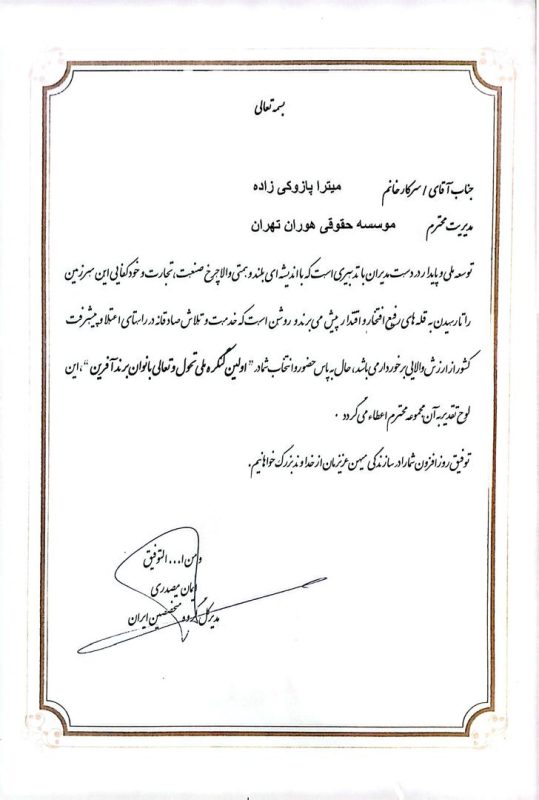 بسمه تعالی
جناب آقای / سرکار خانم میترا پازوکی زاده
مدیریت محترم موسسه حقوقی هوران تهران
توسعه ملی و پایدار در دست مدیران با تدبیری است که با اندیشه ای بلند و همتی والا چرخ صنعت، تجارت و خودکفایی این سرزمین
را تا رسیدن به قله های رفیع افتخار و اقتدار پیش می برند و روشن است که خدمت و تلاش صادقانه در راستای اعتلا و پیشرفت
کشور از ارزش والایی برخوردار می باشد، حال به پاس حضور و انتخاب شما در "اولین کنگره ملی تحول و تعالی بانوان برند آفرین"، این
لوح تقدیر به آن مجموعه محترم اعطاء می گردد .
توفیق روز افزون شما را در سازندگی میهن عزیزمان از خداوند بزرگ خواهانیم.
و من ا... التوفیق
ایمان میصدری
مدیر کل گروه متخصصین ایران